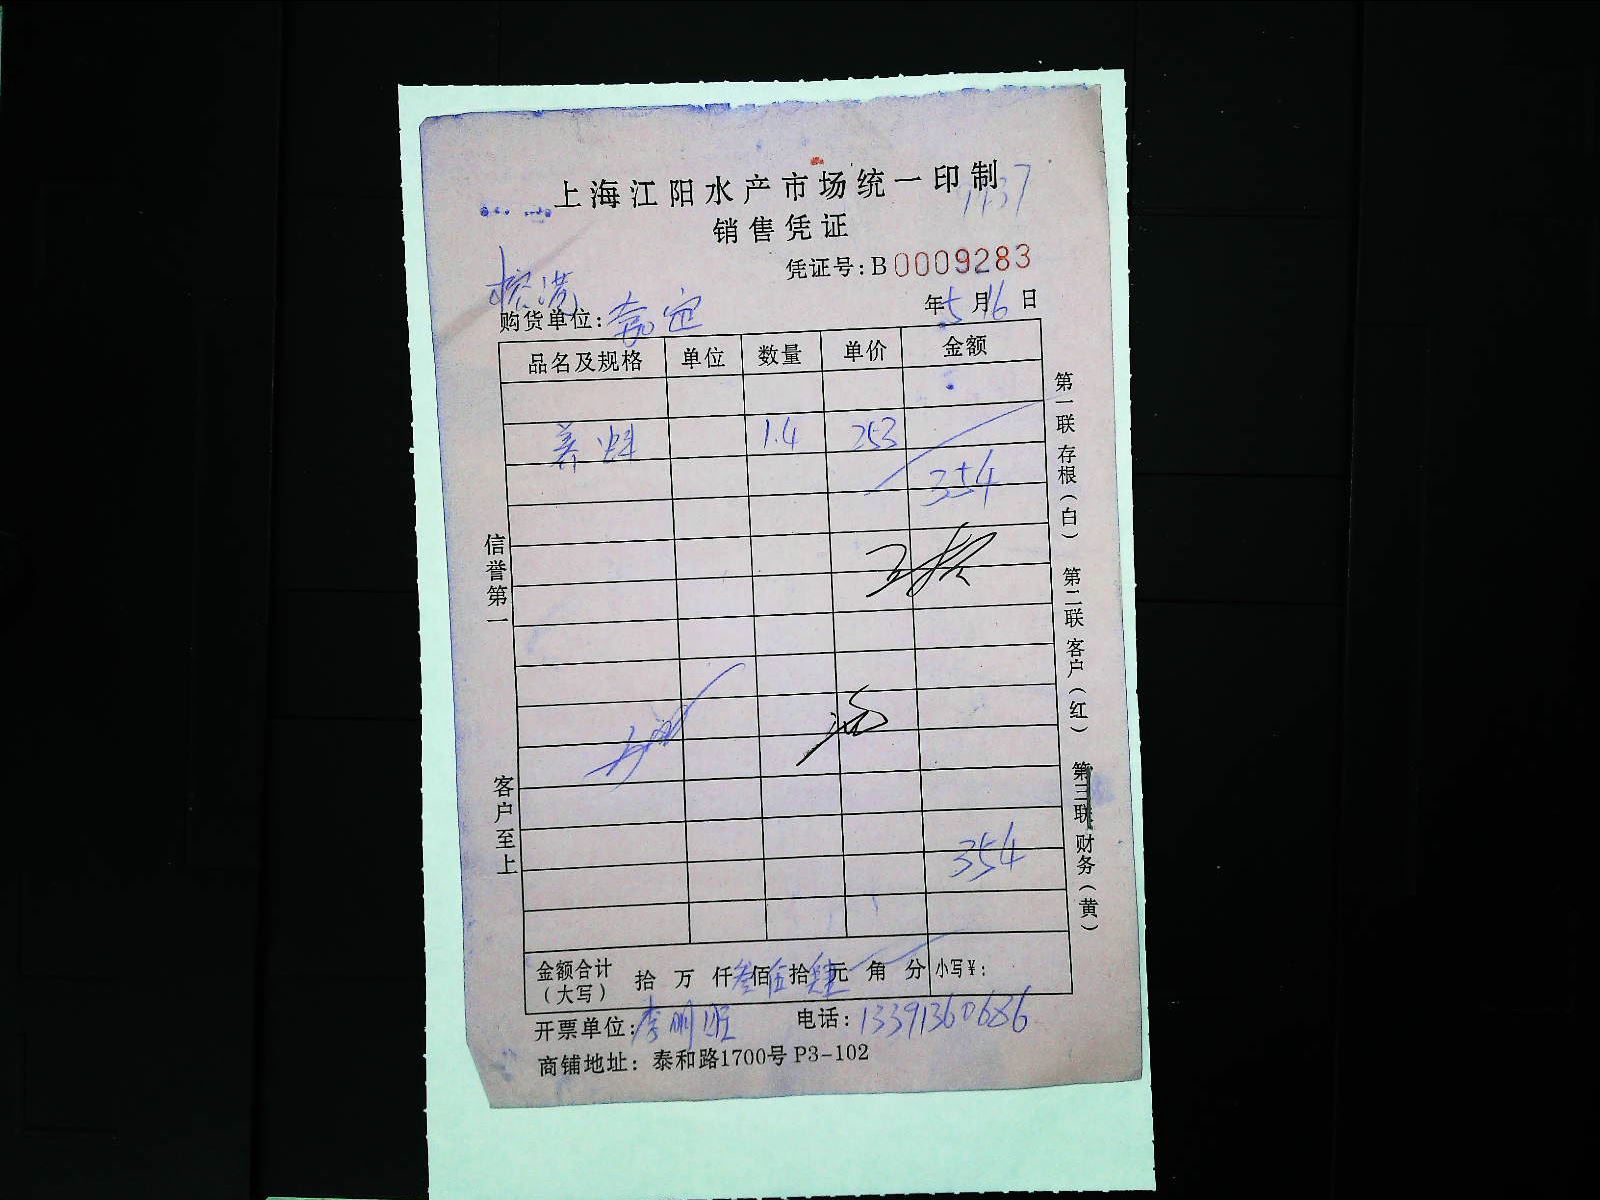 上海江阳水产市场统一印制
1437
销售凭证
凭证号:B0009283
购货单位:嘉定
年5月16日
品名及规格 单位 数量 单价 金额
1.4 253
354
354
金额合计（大写） 拾万仟叁佰伍拾肆元角分 小写¥:
开票单位:李明旺 电话:13391360686
商铺地址: 泰和路1700号 P3-102
信誉第一
客户至上
第一联 存根（白） 第二联 客户（红） 第三联 财务（黄）